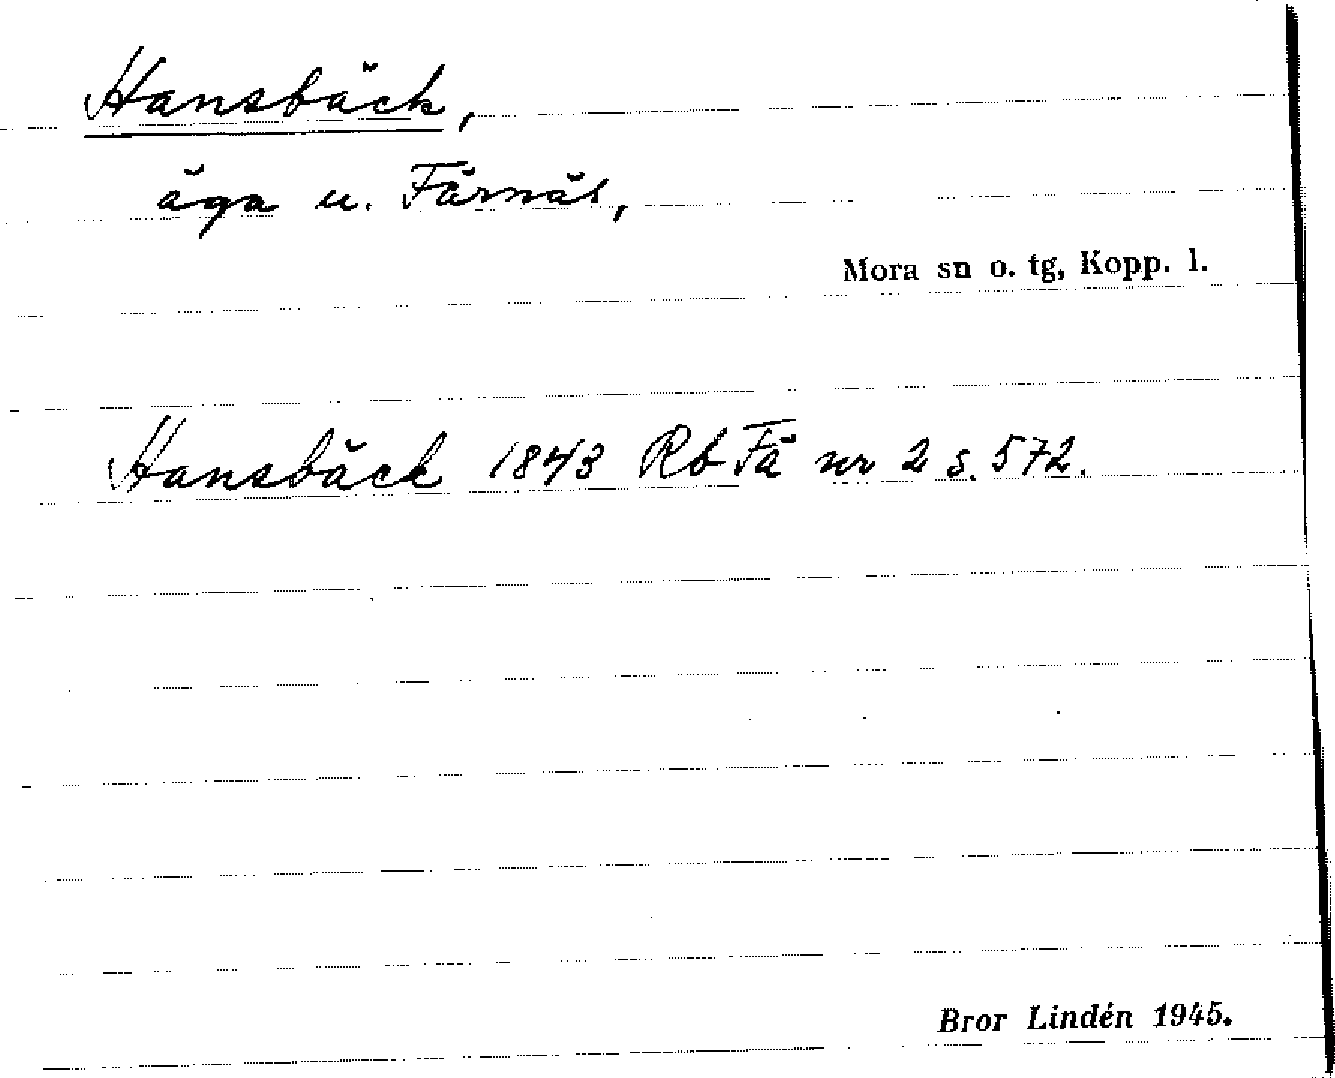 Hansbäck,
äga u. Färnäs,
Mora sn o. tg, Kopp. l.
Hansbäck 1843 Rb Fä nr 2 s. 572.
Bror Lindén 1945.